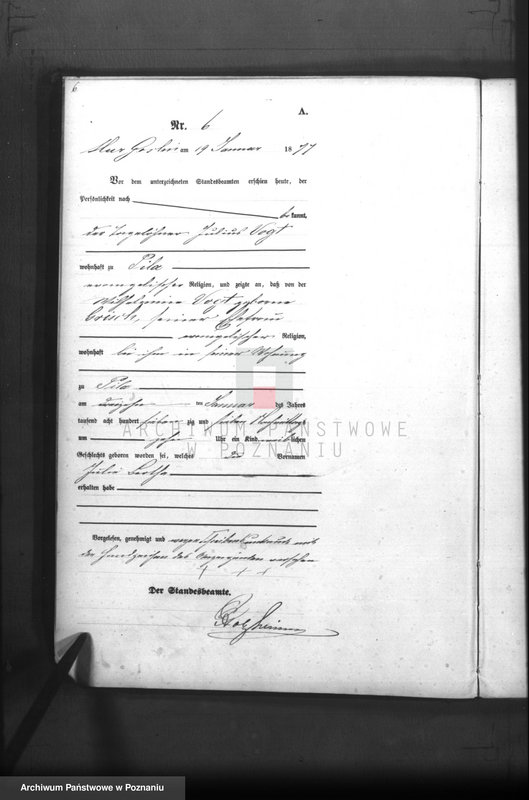 6
A.
Nr. 6
am 19 Januar 1877
Vor dem unterzeichneten Standesbeamten erschien heute, der
Persönlichkeit nach
be kannt,
der Tagelöhner Julius Vogt
wohnhaft zu Pila
evangelischer Religion, und zeigte an, daß von der
Wilhelmine Vogt geborne
seiner Ehefrau
evangelischer Religion,
wohnhaft bei ihm in seiner Wohnung
zu Pila
am ten Januar des Jahres
tausend acht hundert zig und
um Uhr ein Kind weiblichen
Geschlechts geboren worden sei, welches die Vornamen
Julie Bertha
erhalten habe
Vorgelesen, genehmigt und wegen Schreibensunkunde mit
den Handzeichen des Anzeigenden versehen
+ + +
Der Standesbeamte.
ARCHIWUM PAŃSTWOWE
W POZNANIU
Archiwum Państwowe w Poznaniu
Archiwum Państwowe w Poznaniu